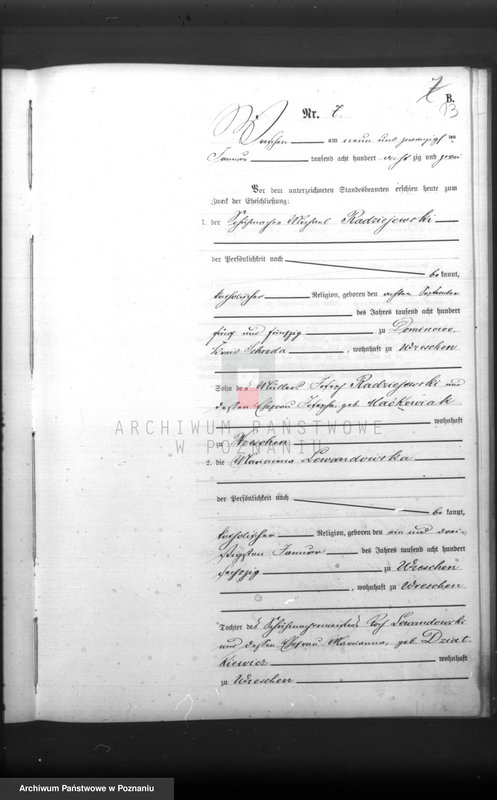 7
B.
13
Nr. 7.
Wreschen am neun und zwanzigsten
Januar tausend acht hundert acht zig und zwei
Vor dem unterzeichneten Standesbeamten erschien heute zum
Zweck der Eheschließung:
1. der Schuhmacher Michael Radziejewski
der Persönlichkeit nach
be kannt,
katholischer Religion, geboren den achten September
des Jahres tausend acht hundert
fünf und fünfzig zu Domenowo
Kreis Schroda, wohnhaft zu Wreschen
Sohn des Müllers Joseph Radziejewski und
dessen Ehefrau Josepha geb. Maćkowiak
wohnhaft
zu Wreschen
2. die Marianna Lewandowska
der Persönlichkeit nach
be kannt,
katholischer Religion, geboren den ein und drei-
ßigsten Januar des Jahres tausend acht hundert
sechszig zu Wreschen
, wohnhaft zu Wreschen
Tochter des Schuhmachermeisters Roch Lewandowski
und dessen Ehefrau Marianna, geb. Dziat-
kiewicz wohnhaft
zu Wreschen
ARCHIWUM PAŃSTWOWE
W POZNANIU
Archiwum Państwowe w Poznaniu